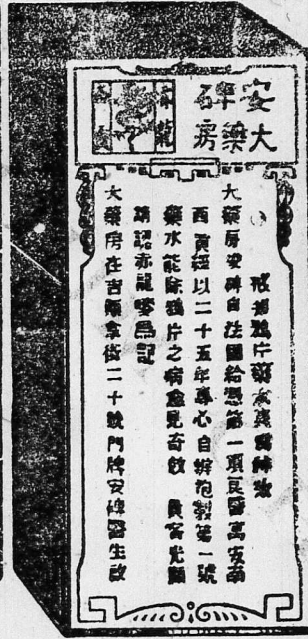 安碑
大藥房
赤龍
戒鴉片藥水神效
大藥房安碑自法國給憑第一項良醫寓安南
西貢經以二十五年專心自辦炮製第一號
藥水能除鴉片之病愈見奇效 貴客光顧
請認赤龍嘜爲記
大藥房在吉拿街二十號門牌安碑醫生啟